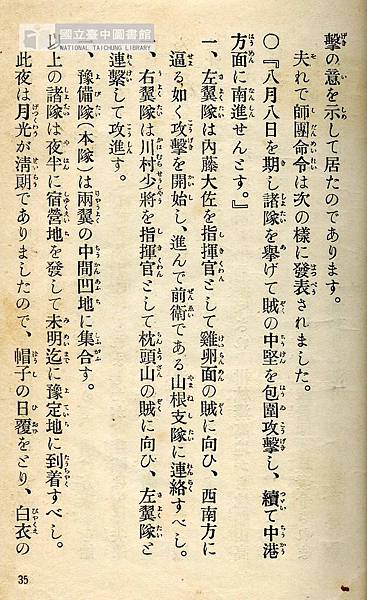 國立臺中圖書館
NATIONAL TAICHUNG LIBRARY
擊の意を示して居たのであります。
夫れで師團命令は次の樣に發表されました。
〇『八月八日を期し諸隊を擧げて賊の中堅を包圍攻擊し、續て中港
方面に南進せんとす。』
一、左翼隊は內藤大佐を指揮官として雞卵面の賊に向ひ、西南方に
逼る如く攻擊を開始し、進んで前衛である山根支隊に連絡すべし。
、右翼隊は川村少將を指揮官として枕頭山の賊に向ひ、左翼隊と
連繫して攻進す。
、豫備隊(本隊)は兩翼の中間凹地に集合す。
以上の諸隊は夜半に宿營地を發して未明迄に豫定地に到着すべし。
此夜は月光が淸朗でありましたので、帽子の日覆をとり、白衣の
35